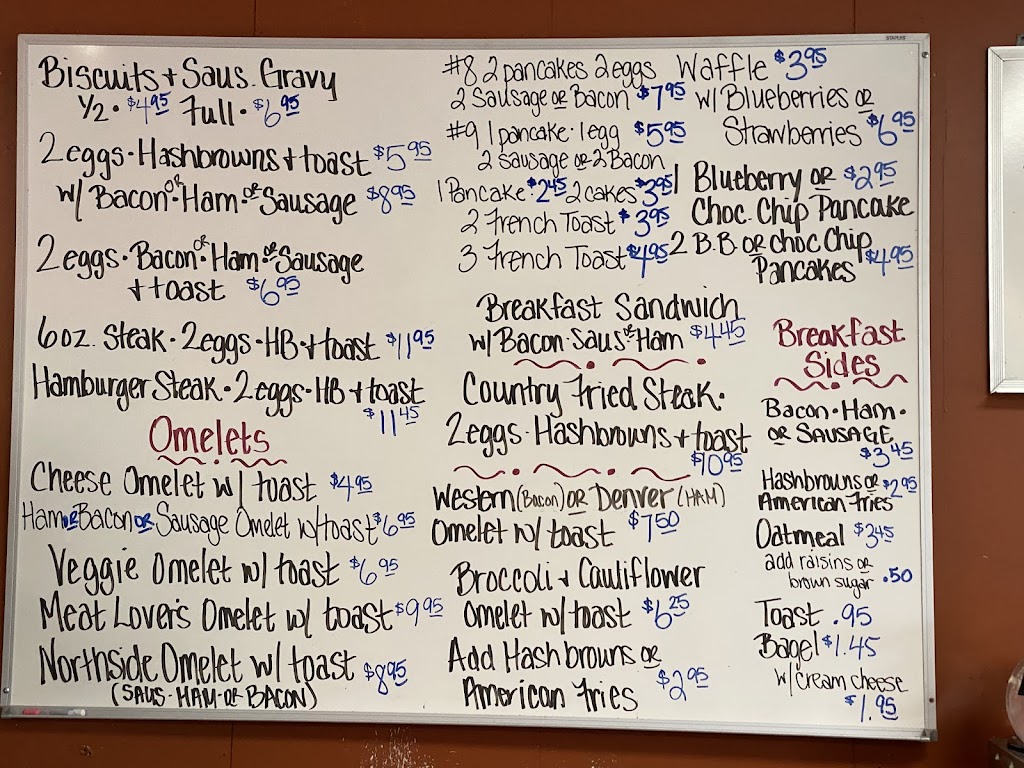 STAPLES
Biscuits + Saus. Gravy
1/2 • $4.95 Full • $6.95
2 eggs • Hashbrowns + toast $5.95
w/ Bacon or Ham or Sausage $8.95
2 eggs • Bacon or Ham or Sausage
+ toast $6.95
6 oz. Steak • 2 eggs • HB + toast $11.95
Hamburger Steak • 2 eggs • HB + toast
$11.45
Omelets
Cheese Omelet w/ toast $4.95
Ham or Bacon or Sausage Omelet w/toast $6.95
Veggie Omelet w/ toast $6.95
Meat Lover's Omelet w/ toast $9.95
Northside Omelet w/ toast $8.95
(SAUS • HAM • OR BACON)
#8 2 pancakes 2 eggs
2 Sausage or Bacon $7.95
#9 1 pancake • 1 egg $5.95
2 sausage or 2 Bacon
1 Pancake • $2.45 2 cakes $3.95
2 French Toast $3.95
3 French Toast $4.95
Breakfast Sandwich
w/ Bacon • Saus or Ham $4.45
Country Fried Steak •
2 eggs • Hashbrowns + toast
$10.95
Western (Bacon) or Denver (HAM)
Omelet w/ toast $7.50
Broccoli + Cauliflower
Omelet w/ toast $6.25
Add Hashbrowns or
American Fries $2.95
Waffle $3.95
w/ Blueberries or
Strawberries $6.95
1 Blueberry or $2.95
Choc. Chip Pancake
2 B.B. or choc Chip
Pancakes $4.95
Breakfast
Sides
Bacon • Ham •
or SAUSAGE
$3.45
Hashbrowns or $2.95
American Fries
Oatmeal $3.45
add raisins or
brown sugar .50
Toast .95
Bagel $1.45
w/ cream cheese
$1.95